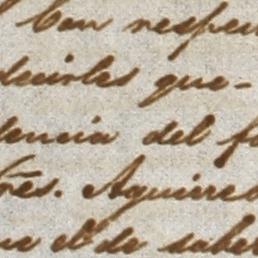 Con respe
decirles que-
dencia del f
res. Aguirre
ue el de sabe